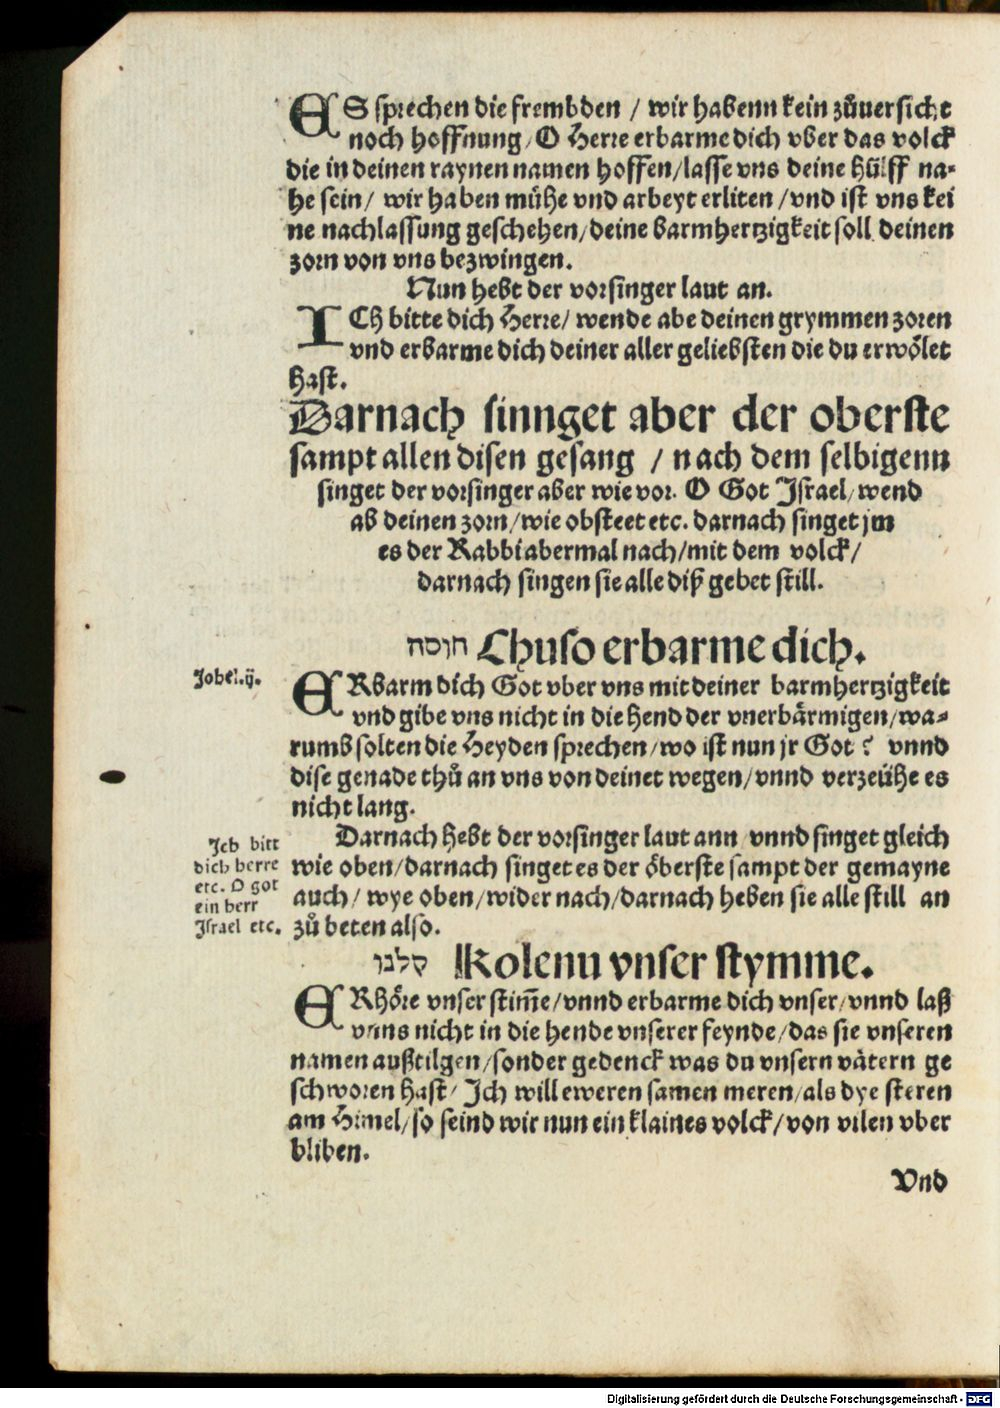 ES sprechen die frembden / wir habenn kein zůuersicht
noch hoffnung / O Herre erbarme dich vber das volck
die in deinen raynen namen hoffen / lasse vns deine hülff na-
he sein / wir haben mühe vnd arbeyt erliten / vnd ist vns kei
ne nachlassung geschehen / deine barmhertzigkeit soll deinen
zorn von vns bezwingen.
Nun hebt der vorsinger laut an.
ICh bitte dich Herre / wende abe deinen grymmen zoren
vnd erbarme dich deiner aller geliebsten die du erwölet
hast.
Darnach sinnget aber der oberste
sampt allen disen gesang / nach dem selbigenn
singet der vorsinger aber wie vor. O Got Israel / wend
ab deinen zorn / wie obsteet etc. darnach singet jm
es der Rabbi abermal nach / mit dem volck /
darnach singen sie alle diß gebet still.
חוסה Chuso erbarme dich.
Johel.ij.
ERbarm dich Got vber vns mit deiner barmhertzigkeit
vnd gibe vns nicht in die hend der vnerbärmigen / wa-
rumb solten die Heyden sprechen / wo ist nun jr Got ? vnnd
dise genade thů an vns von deinet wegen / vnnd verzeühe es
nicht lang.
Darnach hebt der vorsinger laut ann vnnd singet gleich
wie oben / darnach singet es der öberste sampt der gemayne
auch / wye oben / wider nach / darnach heben sie alle still an
zů beten also.
Ich bitt
dich herre
etc. O got
ein herr
Israel etc.
קלנו Kolenu vnser stymme.
ERhöre vnser stim̄e / vnnd erbarme dich vnser / vnnd laß
vnns nicht in die hende vnserer feynde / das sie vnseren
namen außtilgen / sonder gedenck was du vnsern vätern ge
schworen hast / Ich will eweren samen meren / als dye steren
am Himel / so seind wir nun ein klaines volck / von vilen vber
bliben.
Vnd
Digitalisierung gefördert durch die Deutsche Forschungsgemeinschaft - DFG